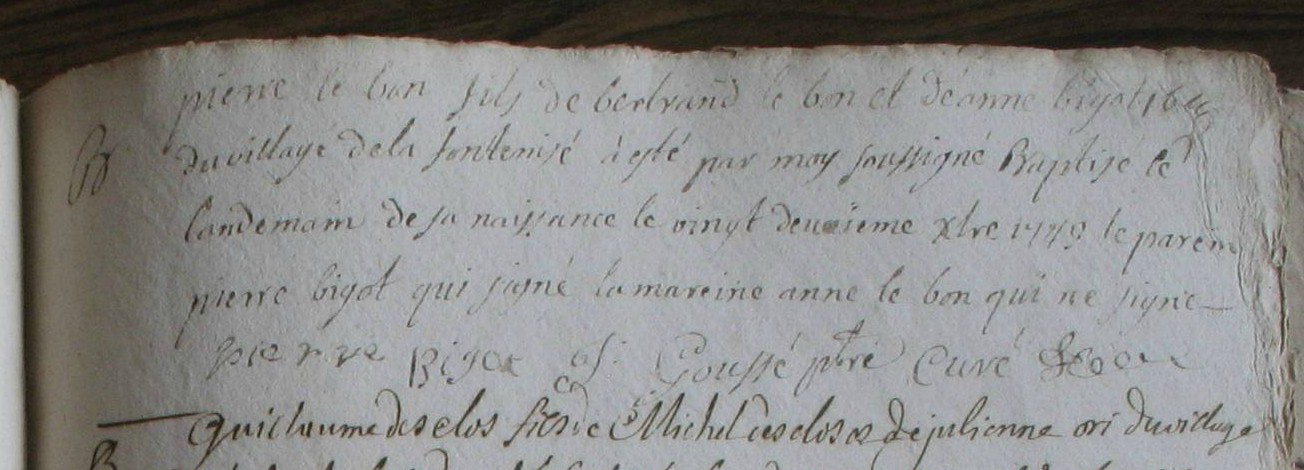 pierre le bon fils de bertrand le bon et deanne bigot
B du village dela fontenisé à esté par moy soussigné Baptisé le
landemain de sa naissance le vingt deuxieme xbre 1779 le parein
pierre bigot qui signé la mareine anne le bon qui ne signe
pierre Bigot J: Goussé ptre Curé
Guillaume desclos fils de Michel desclos et de julienne ori du village